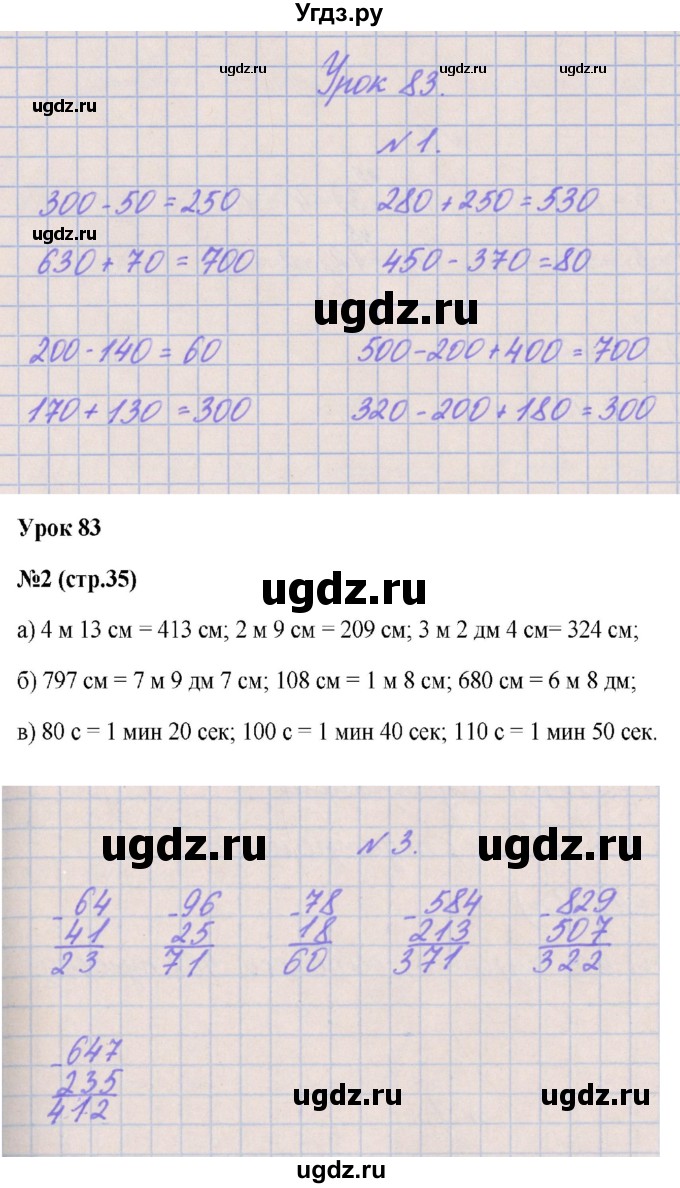 Угдз.ру
ugdz.ru ugdz.ru ugdz.ru
ugdz.ru
Урок 83.
№1.
300-50=250 280+250=530
ugdz.ru
630+70=700 450-370=80
ugdz.ru
200-140=60 500-200+400=700
170+130=300 320-200+180=300
Урок 83
№2 (стр.35)
ugdz.ru
а) 4 м 13 см = 413 см; 2 м 9 см = 209 см; 3 м 2 дм 4 см= 324 см;
б) 797 см = 7 м 9 дм 7 см; 108 см = 1 м 8 см; 680 см = 6 м 8 дм;
в) 80 с = 1 мин 20 сек; 100 с = 1 мин 40 сек; 110 с = 1 мин 50 сек.
ugdz.ru №3. ugdz.ru
-64 -96 -78 -584 -829
41 25 18 213 507
23 71 60 371 322
-647
235
412
ugdz.ru ugdz.ru
ugdz.ru